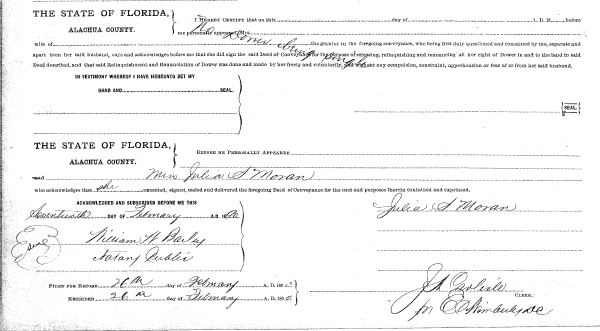 THE STATE OF FLORIDA,
ALACHUA COUNTY.
I HEREBY CERTIFY that on this day of A. D. 18 before
me personally appeared Mrs. No Dower being single
wife of the grantor in the foregoing conveyance, who being first duly questioned and examined by me, separate and
apart from her said husband, says and acknowledges before me that she did sign the said Deed of Conveyance for the purpose of releasing, relinquishing and renouncing all her right of Dower in and to the land in said
Deed described, and that said Relinquishment and Renunciation of Dower was done and made by her freely and voluntarily, without any compulsion, constraint, apprehension or fear of or from her said husband.
IN TESTIMONY WHEREOF I HAVE HEREUNTO SET MY
HAND AND SEAL.
SEAL.
THE STATE OF FLORIDA,
ALACHUA COUNTY.
BEFORE ME PERSONALLY APPEARED
Miss Julia S Moran
who acknowledges that she executed, signed, sealed and delivered the foregoing Deed of Conveyance for the uses and purposes therein contained and expressed.
ACKNOWLEDGED AND SUBSCRIBED BEFORE ME THIS
Seventeenth DAY OF February A.D. 18
Julia S Moran
William W Bailey
Notary Public
FILED FOR RECORD 26th day of February A. D. 18
RECORDED 26th day of February A. D. 18
J A Carlisle
CLERK.
for E C Wimberly DC